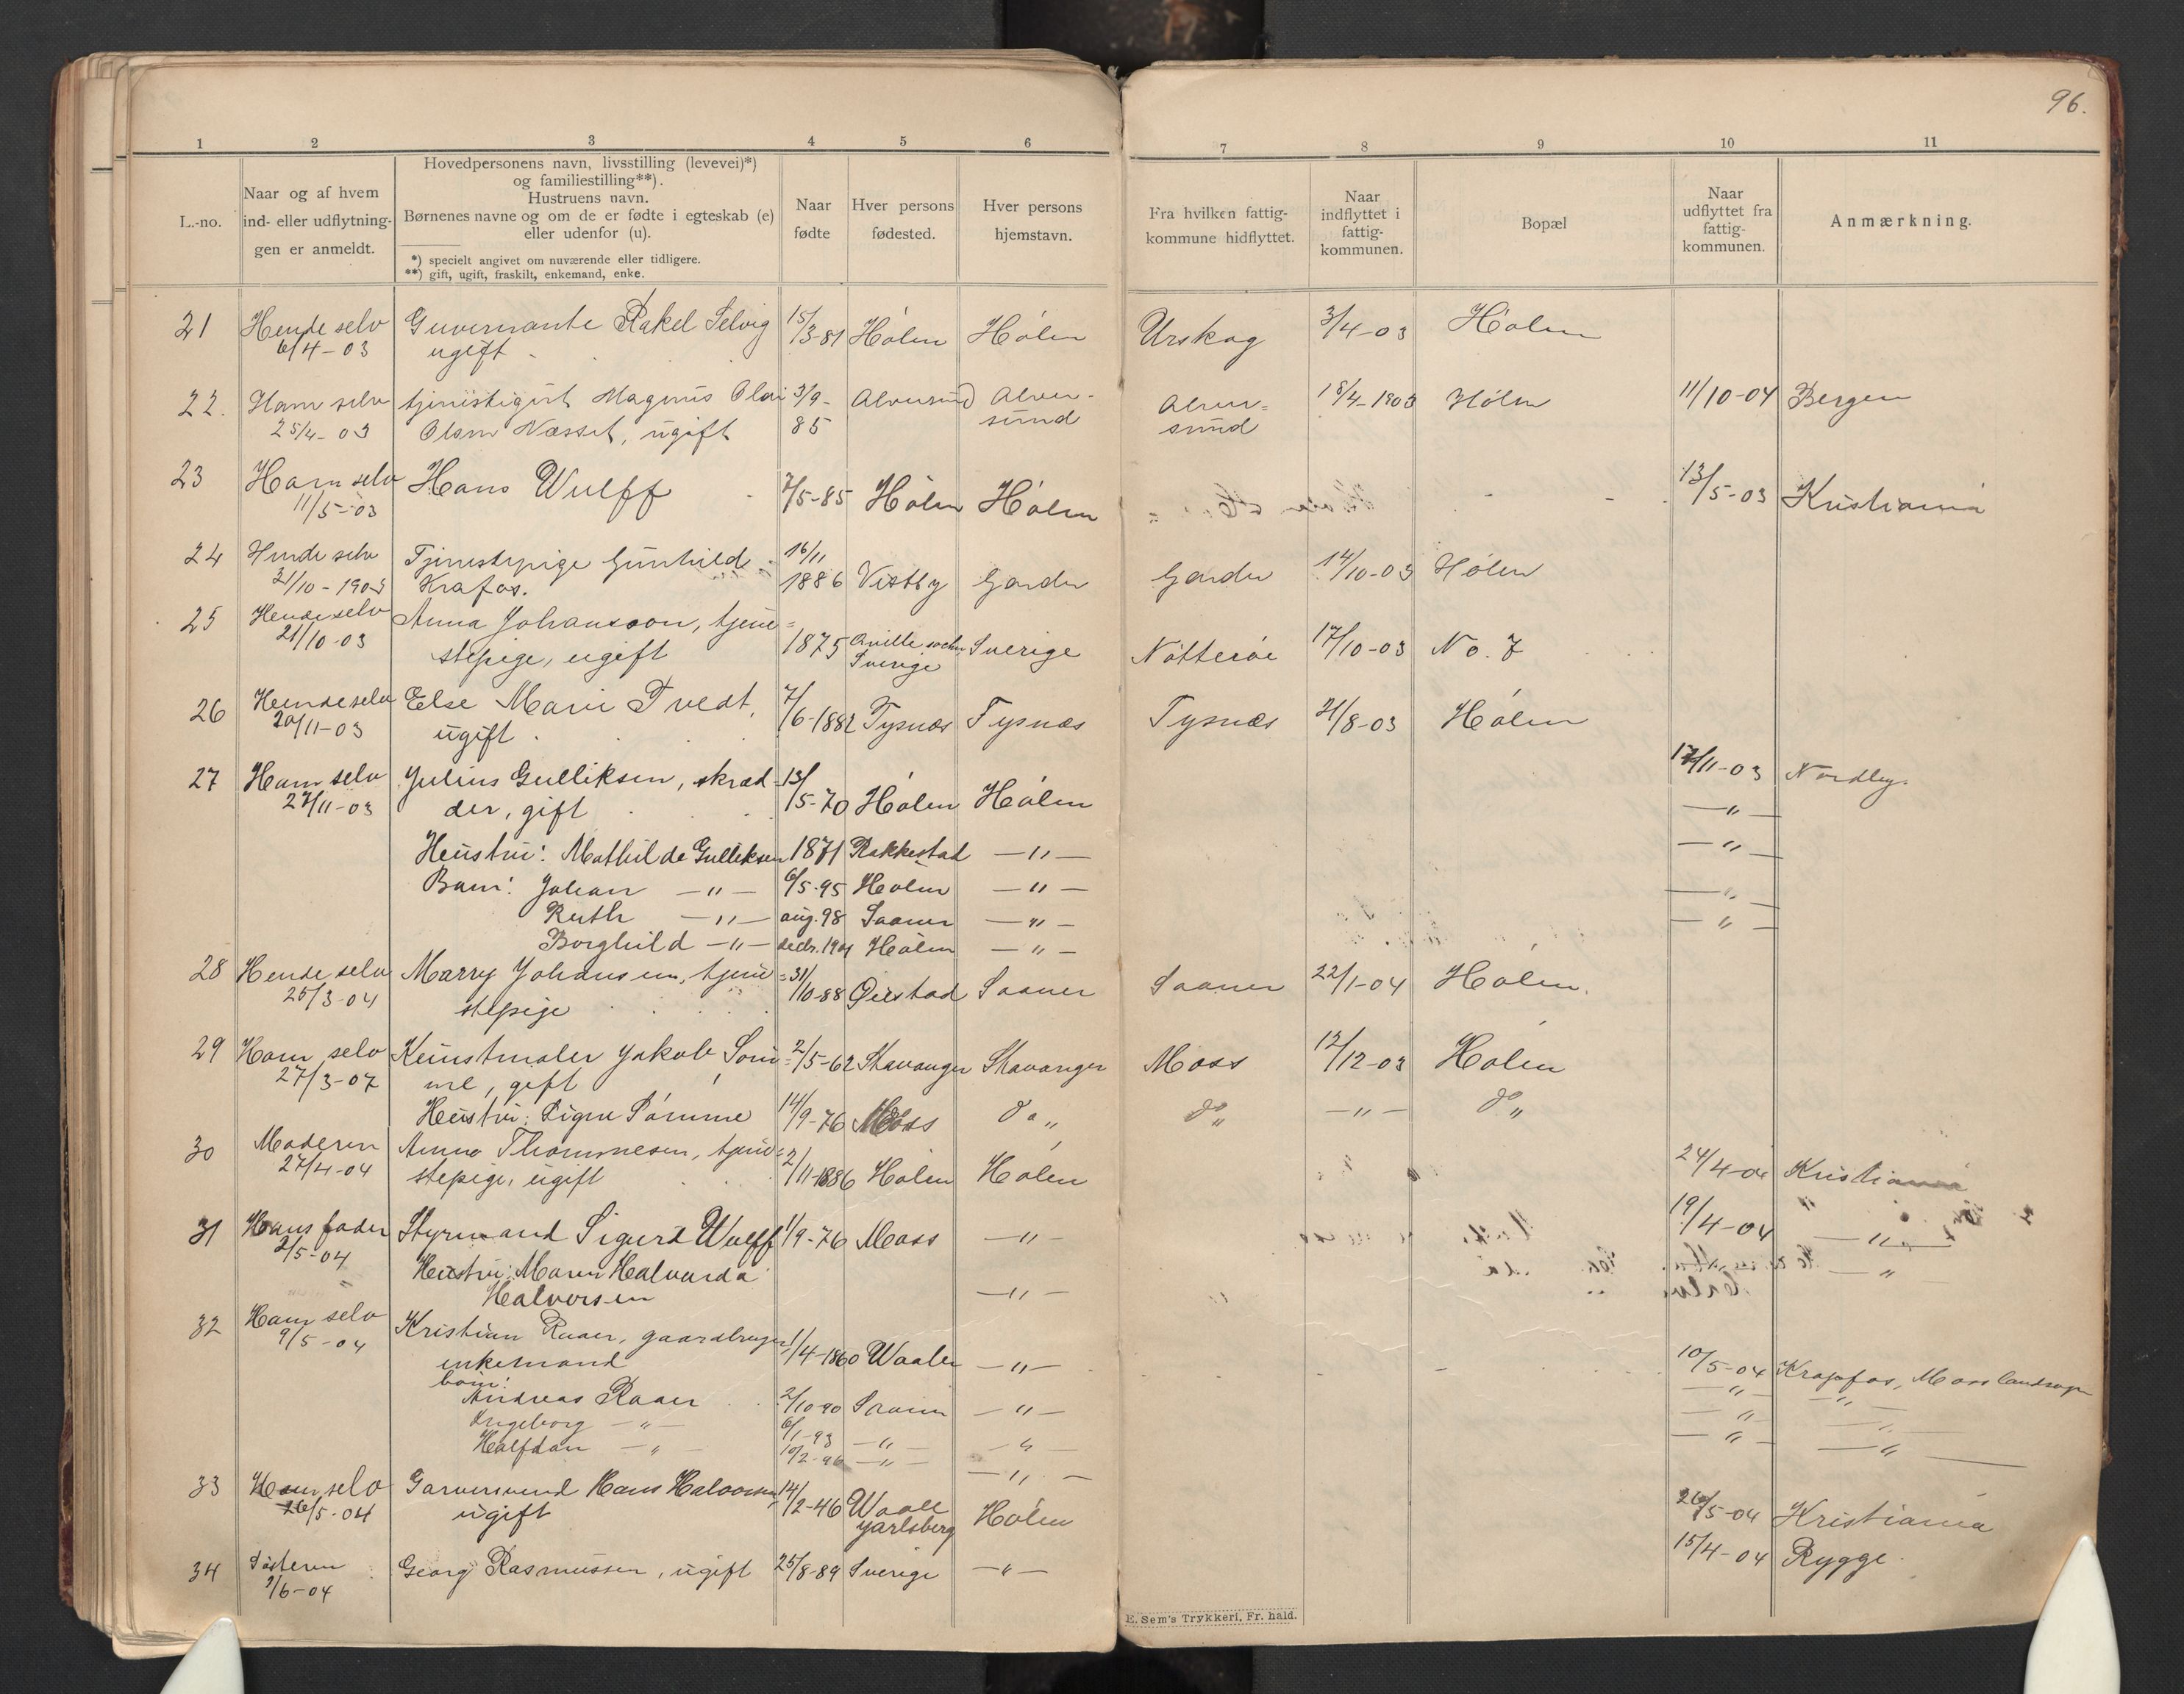 96.
1 2 3 4 5 6 7 8 9 10 11
L.-no.
Naar og af hvem
ind- eller udflytnin-
gen er anmeldt.
Hovedpersonens navn, livsstilling (levevei)*)
og familiestilling**).
Hustruens navn.
Børnenes navne og om de er fødte i egteskab (e)
eller udenfor (u).
*) specielt angivet om nuværende eller tidligere.
**) gift, ugift, fraskilt, enkemand, enke.
Naar
fødte
Hver persons
fødested.
Hver persons
hjemstavn.
Fra hvilken fattig-
kommune hidflyttet.
Naar
indflyttet i
fattig-
kommunen.
Bopæl
Naar
udflyttet fra
fattig-
kommunen.
Anmærkning.
21 Hende selv Guvernante Rakel Selvig 15/3-81 Hólen Hólen Urskog 3/4-03 Hólen
6/4-03 ugift
22. Ham selv tjenistegut Magnus Olai 3/9- Alversund Alver- Alver= 18/4-1903 Hólen 11/10-04 Bergen
25/4-03 Olsen Næsset, ugift 85 sund sund
23 Ham selv Hans Wulff 7/5-85 Hólen Hólen 13/5-03 Kristiania
11/5-03
24 Hende selv Tjenestepige Gunhild 16/11 Garder 14/10-03 Hólen
21/10-1903 Krafos. 1886 Vestby Garder
25 Hende selv Anna Johansson, tjene=
21/10-03 stepige, ugift 1875 Qville sochn Sverige Nótteróe 17/10-03 No. 7
Sverige
26 Hende selv Else Marie Tvedt, 7/6-1882 Tysnæs Tysnæs Tysnæs 21/8-03 Hólen
20/11-03 ugift
27 Ham selv Julius Gulliksen, skræd- 13/5-70 Hólen Hólen 17/11-03 Nordby.
27/11-03 der, gift —"—
Hustru: Mathilde Gulliksen 1871 Rakkestad —"— —"—
Barn: Johan —"— 6/5-95 Hólen —"— —"—
Ruth —"— aug. 98 Saaner —"— —"—
Borghild —"— decbr. 1901 Hólen —"—
28 Hende selv Marry Johansen, tjene= 31/10-88 Qvistad Saaner Saaner 22/1-04 Hólen.
25/3-04 stepige
29 Ham selv Kunstmaler Jakob Sóm= 2/5-62 Stavanger Stavanger Moss 12/12-03 Hólen
27/3-07 me, gift
Hustru: Signe Sómme 14/9-76 Moss do „ do „ —"— do „
30 Moderen Anna Thommesen, tjene= 2/11-1886 Hólen Hólen 24/4-04 Kristiania
27/4-04 stepige, ugift
31 Hans fader Styrmand Sigurd Wulff 1/9-76 Moss —"— 19/4-04 —"—
2/5-04 Hustru: Maren Halvarda —"—
Halvorsen —"—
32 Ham selv Kristian Raaer, gaardbruger 1/4-1860 Waaler —"— 10/5-04 Krapfos, Moss landsogn
9/5-04 enkemand —"— —"—
born:
Andreas Raaer 2/10-90 Saaner —"— —"— —"—
Ingeborg —"— 6/1-93 —"— —"— —"— —"—
Halfdan —"— 10/2-96 —"— —"—
33 Ham selv Garversvend Hans Halvorsen, 14/2-46 Waale Hólen 26/5-04 Kristiania
26/5-04 ugift Jarlsberg
34 Sósteren Georg Rasmussen, ugift 25/8-89 Sverige —"— 15/4-04 Rygge.
1/6-04
E. Sem's Trykkeri, Fr. hald.